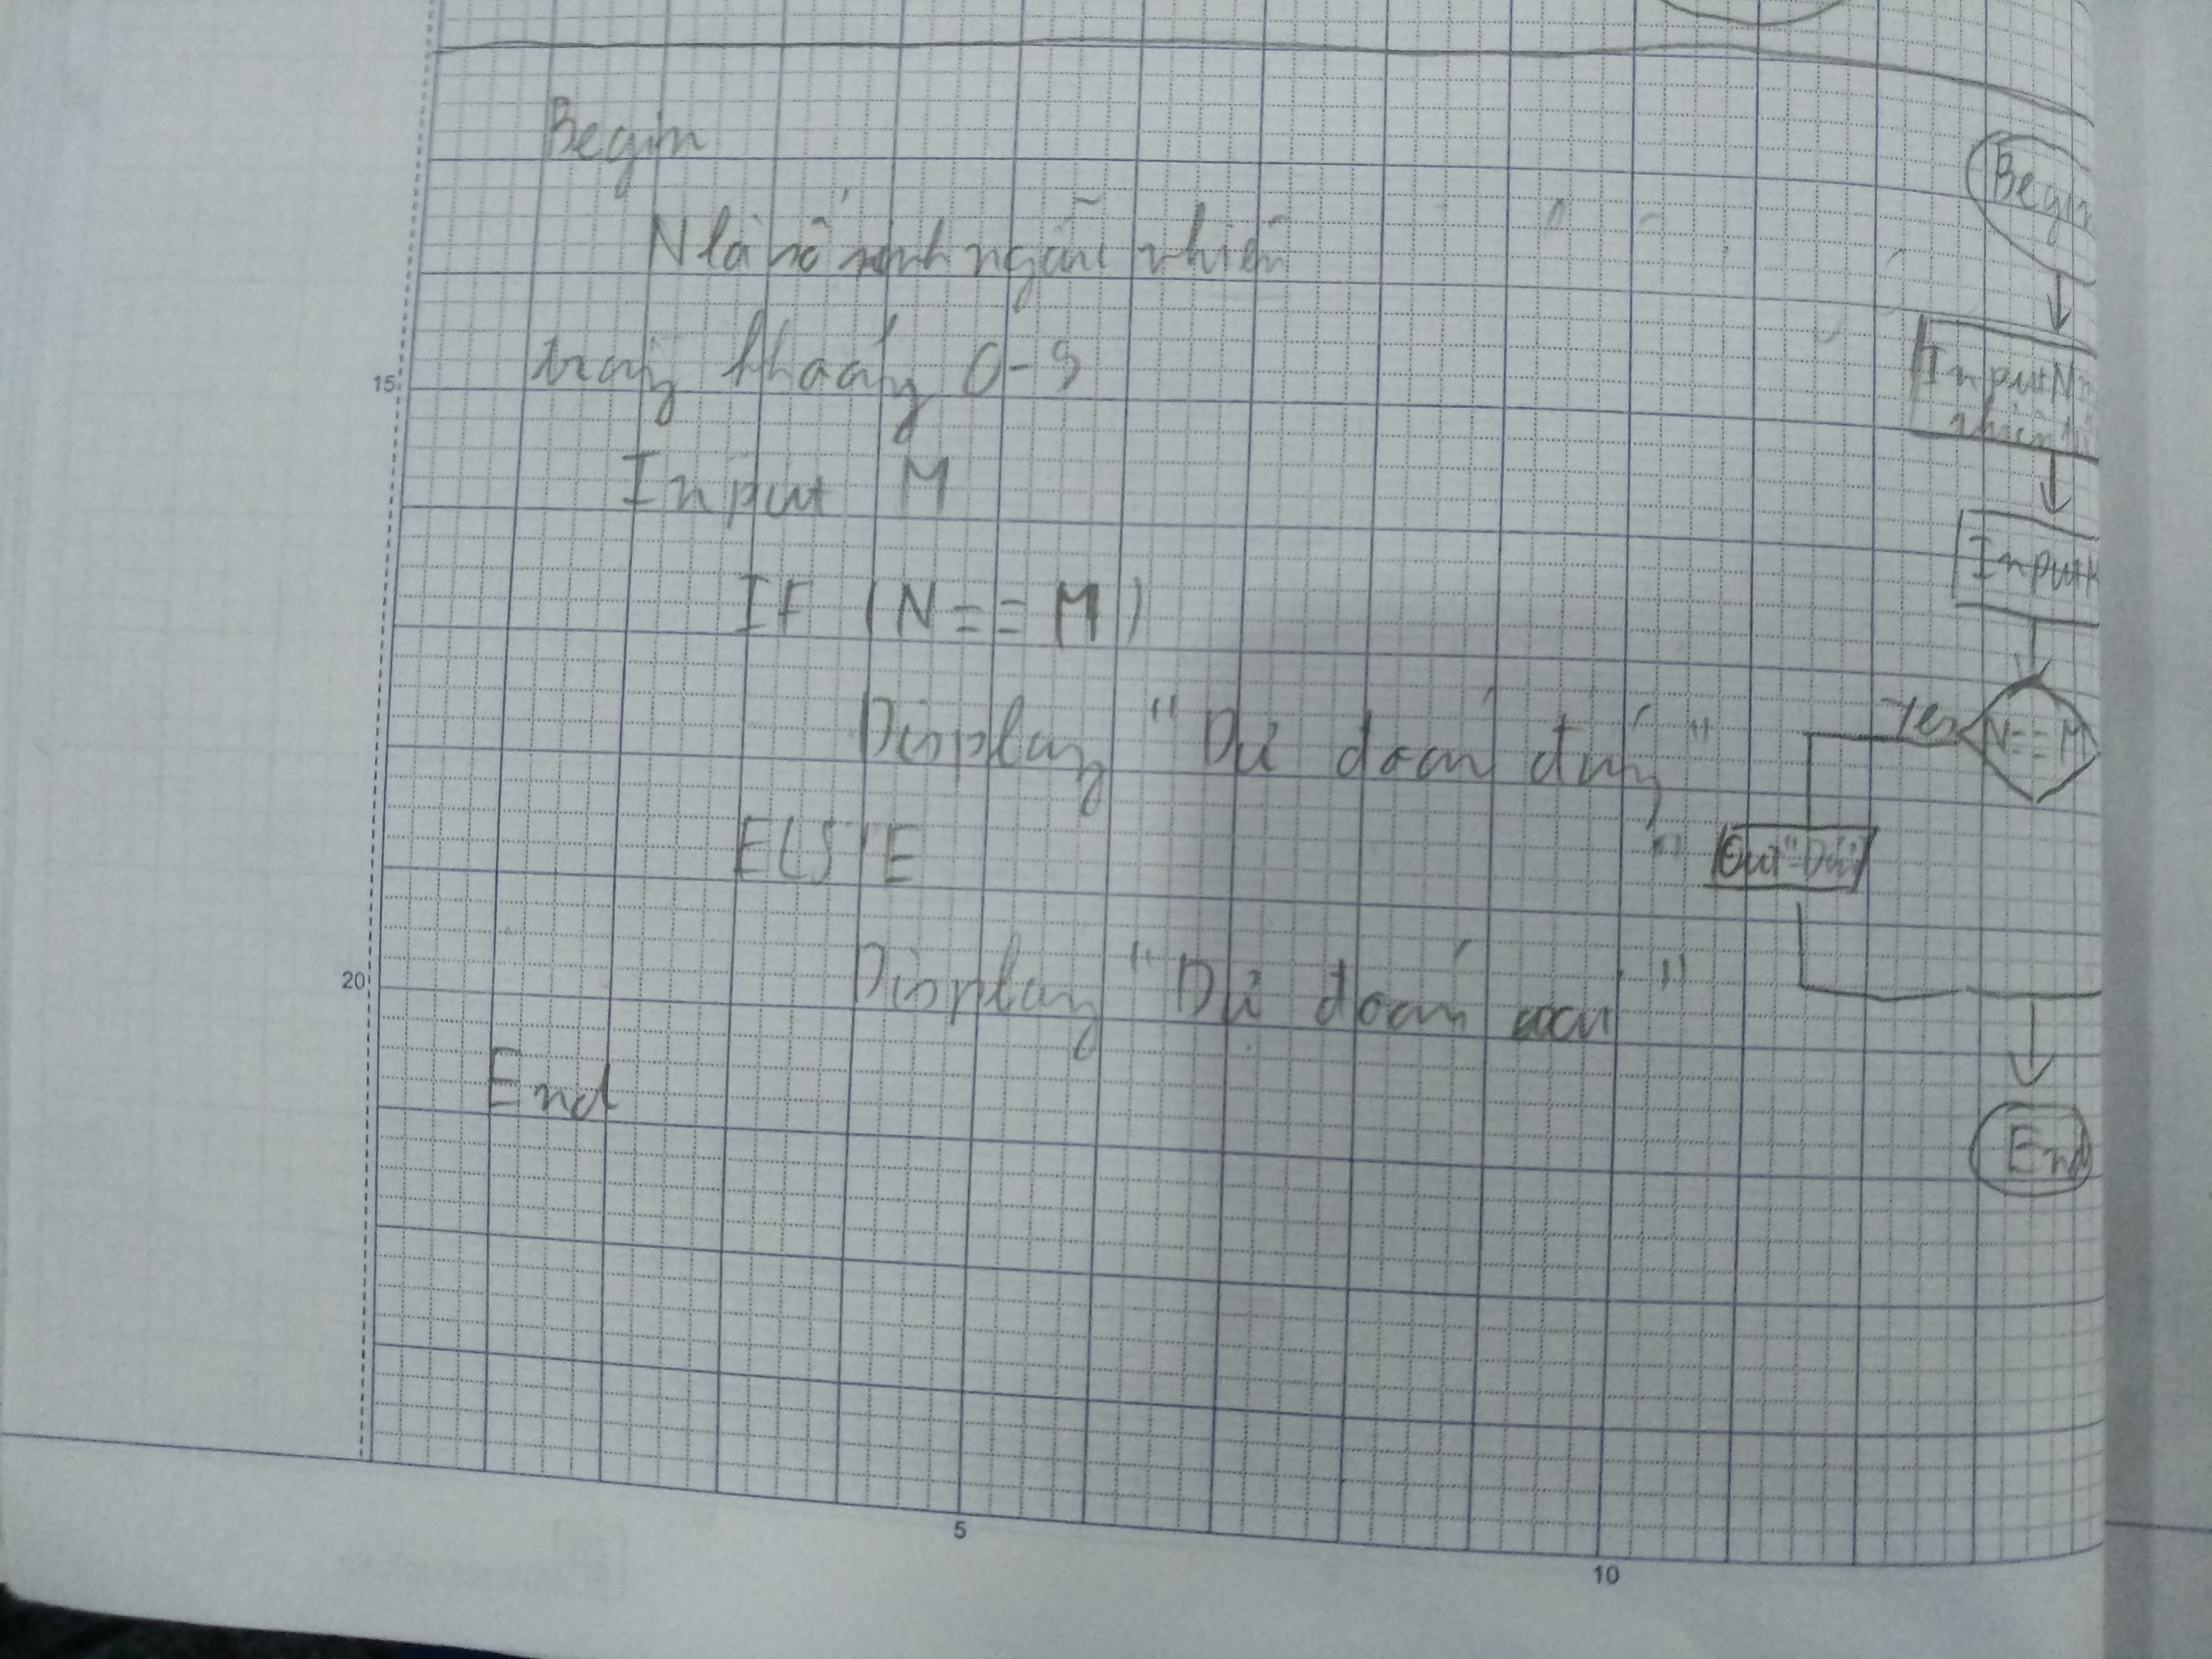 Begin
N là số sinh ngẫu nhiên
trong khoảng 0-9
Input M
IF (N == M)
Display "Dự đoán đúng"
ELSE
Display "Dự đoán sai"
End
Begin
Input N
nhiên
Input M
N == M
Yes
Out "Dự
End
15
20
5
10